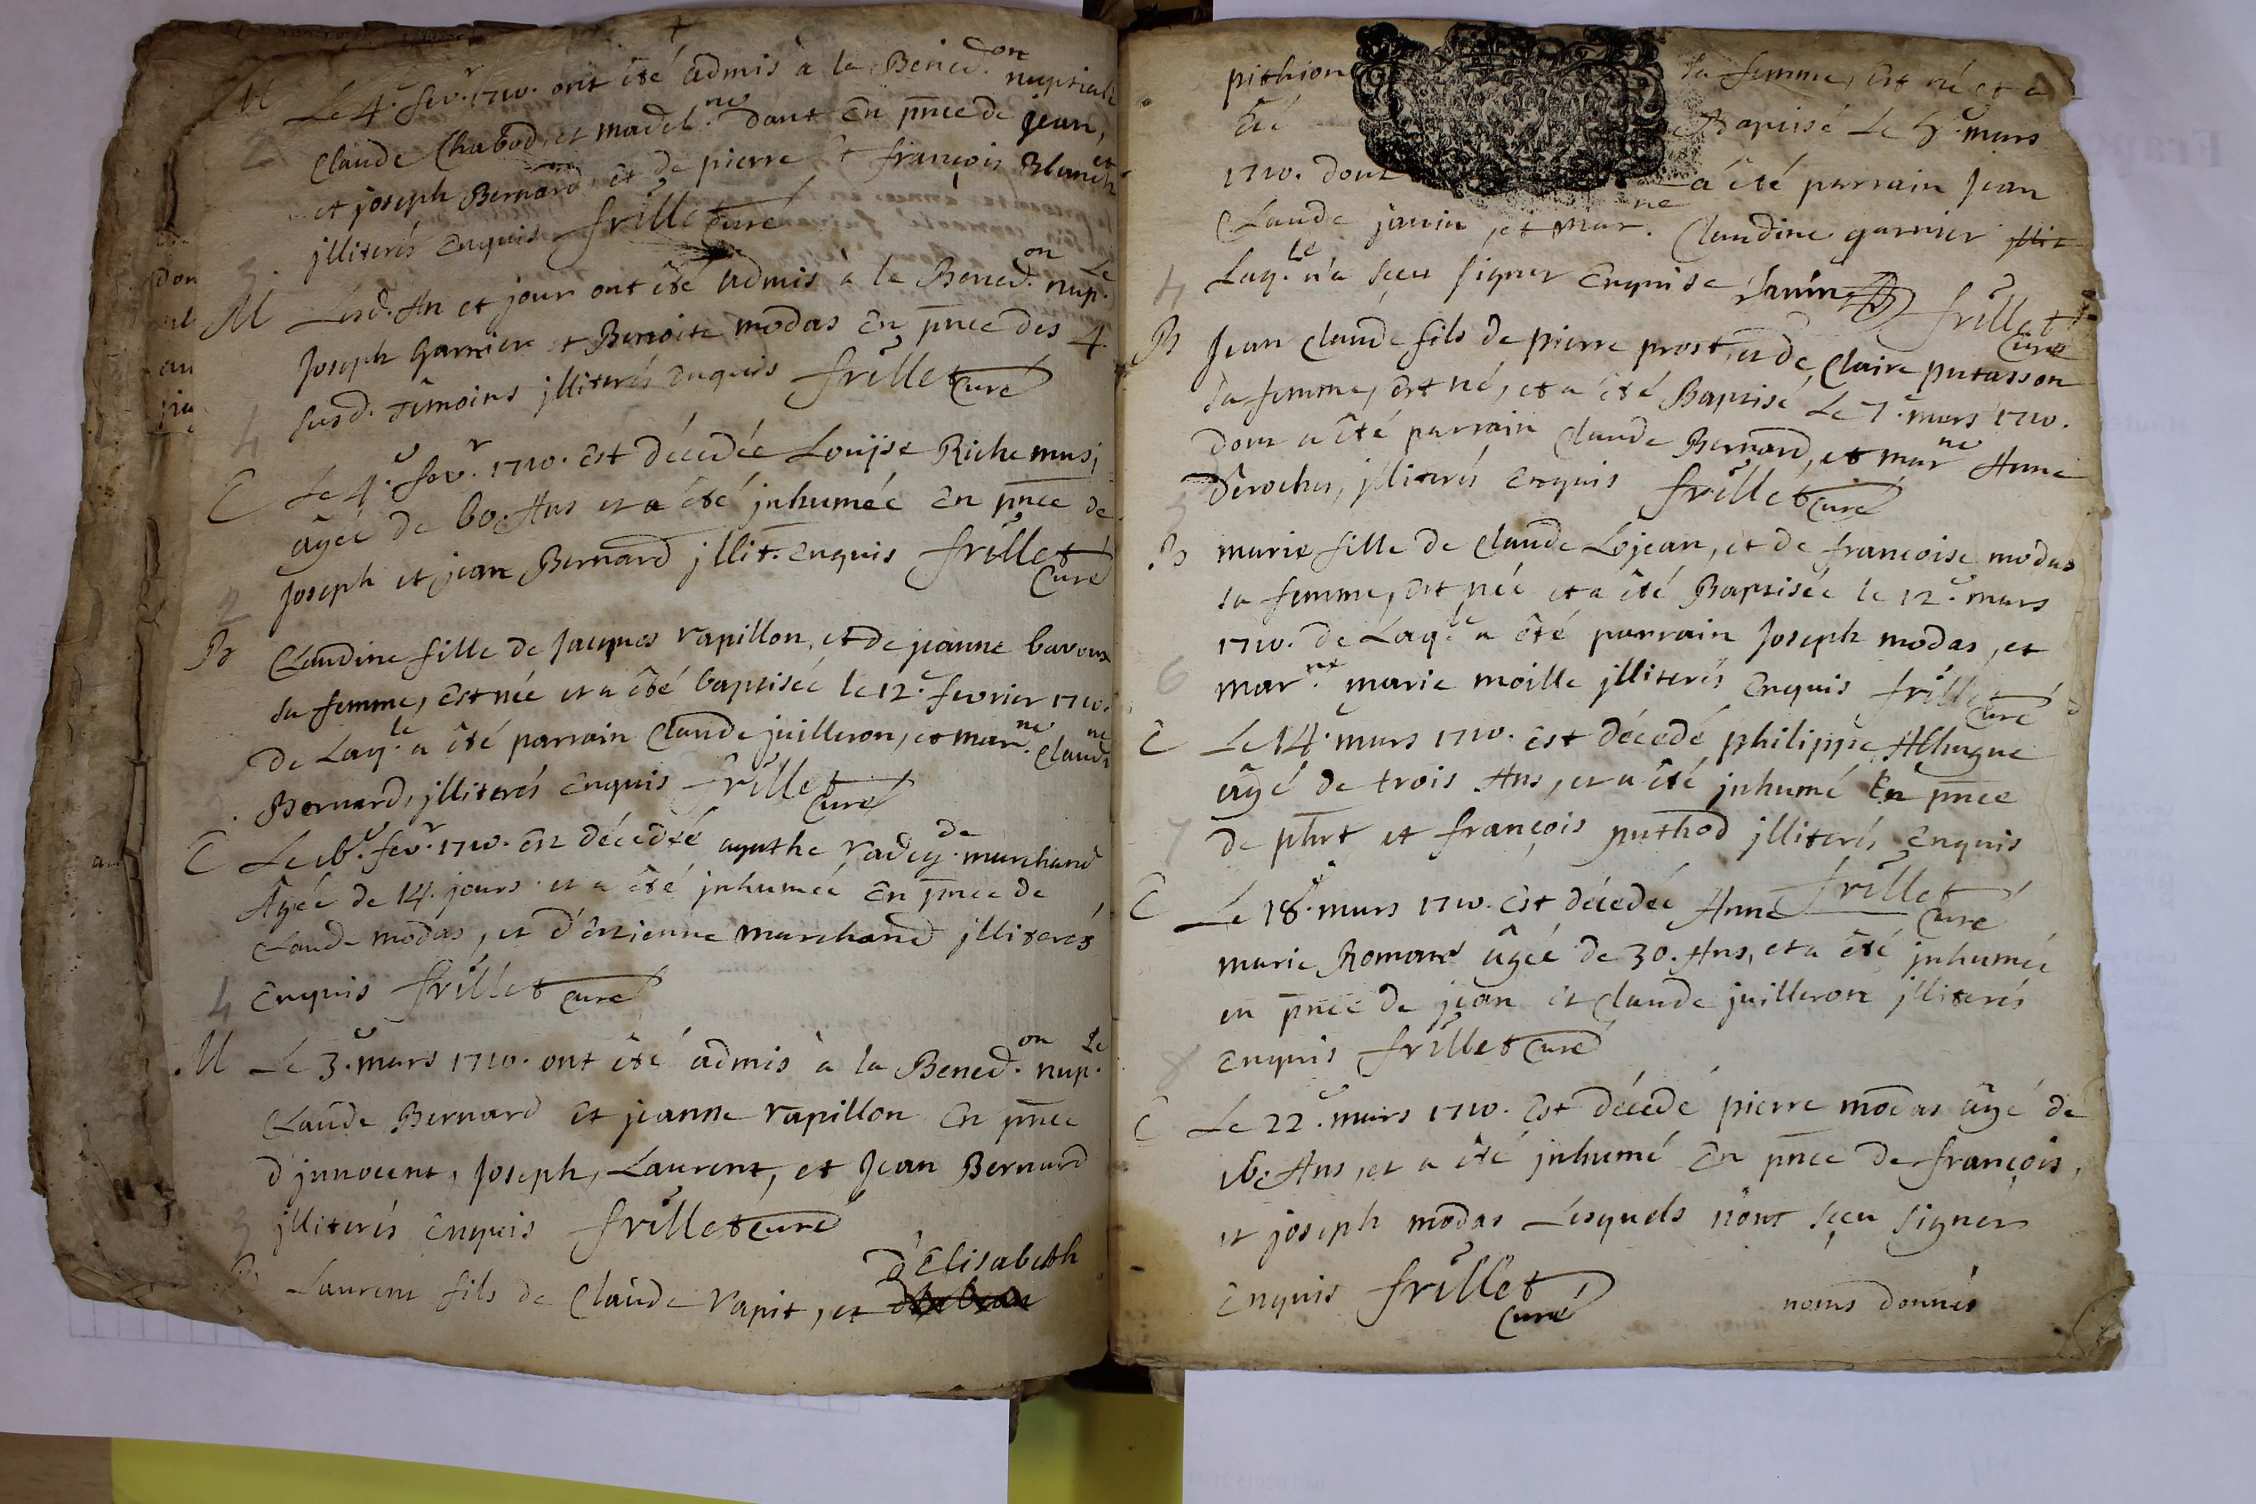 M Le 4.e fev.r 1710. ont êté admis à la Bened.on nuptiale
2 Claude Chabod, et madel.ne dant En pnce de jean,
et joseph Bernard et de pierre et françois Blanch
jlliterés Enquis frillet Curé
3.
M Lesd. An et jour ont êté admis à la Bened.on nup.le
Joseph Garnier et Benoite modas En pnce des 4
susd. têmoins jlliterés Enquis frillet Curé
4
C Le 4.e fev.r 1710. Est décedée Louyse Richemusi,
âgée de 60. Ans et a êté jnhumée En pnce de
Joseph et jean Bernard jllit. Enquis frillet Curé
2
B Claudine fille de Jacques rapillon, et de jeanne bavoux
sa femme, Est née et a êté baptisée le 12.e fevrier 1710.
De Laq.le a êté parrain Claude juilleron, et mar.ne Claud.ne
Bernard, jlliterés Enquis frillet Curé
C Le 16.e fev.r 1710. Est décedée agathe vadey de marchand
Âgée de 14. jours et a êté jnhumée En pnce de
Claude modas, et d'êtienne marchand jlliterés
4 Enquis frillet Curé
M Le 3.e mars 1710. ont êté admis à la Bened.on nup.le
Claude Bernard et jeanne rapillon En pnce
d'jnnocent, Joseph, Laurent, et Jean Bernard
jlliterés Enquis frillet Curé
3
d'Elisabeth
B Laurent fils de Claude Vapit, et
pithion sa femme, Est né et a
êté Baptisé Le 5.e mars
1710. dont a êté parrain Jean
Claude janin, et mar.ne Claudine garnier jllit
Laq.le n'a sceu signer Enquise Janin frillet Curé
4
B Jean Claude fils de pierre prost, et de Claire putasson
sa femme, Est né, et a êté Baptisé Le 7.e mars 1710.
dont a êté parrain Claude Bernard, et mar.ne Anne
Dêroches, jlliterés Enquis frillet Curé
5
B marie fille de Claude Lojean, et de francoise modas
sa femme, Est née et a êté Baptisée le 12.e mars
1710. de Laq.le a êté parrain Joseph modas, et
6 mar.ne marie moille jlliterés Enquis frillet Curé
C Le 14.e mars 1710. Est décedé philippe Alhugue
âgé de trois Ans, et a êté jnhumé En pnce
7 de phrt et françois puthod jlliterés Enquis
frillet Curé
C Le 18.e mars 1710. Est décedée Anne
marie Romand âgée de 30. Ans, et a êté jnhumée
en pnce de jean et Claude juilleron jlliterés
8 Enquis frillet Curé
C Le 22.e mars 1710. Est décedé pierre modas âgé de
16. Ans, et a êté jnhumé En pnce de françois,
et joseph modas Lesquels n'ont sçeu signer
Enquis frillet Curé
noms donnés